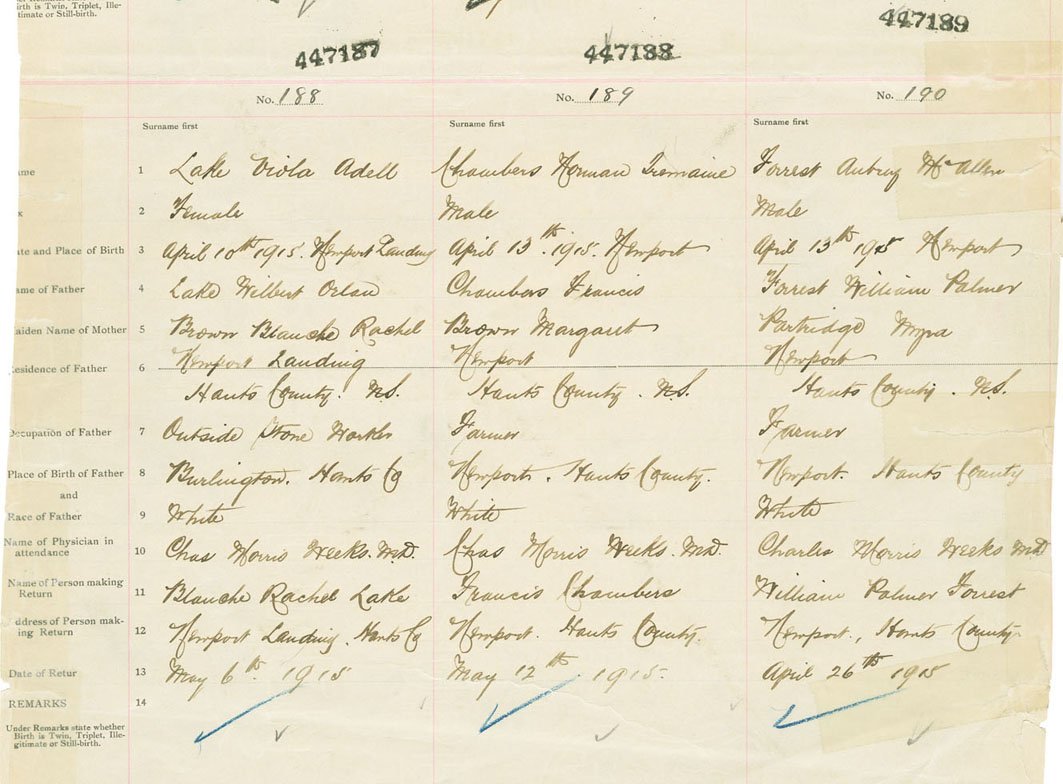 irth is Twin, Triplet, Ille-
timate or Still-birth.
447187 447188 447189
No. 188 No. 189 No. 190
Surname first Surname first Surname first
ame 1 Lake Viola Adell Chambers Norman Tremaine Forrest Aubrey McAllen
x 2 Female Male Male
ate and Place of Birth 3 April 10th 1915. Newport Landing April 13th. 1915. Newport April 13th 1915 Newport
ame of Father 4 Lake Wilbert Orlan Chambers Francis Forrest William Palmer
aiden Name of Mother 5 Brown Blanche Rachel Brown Margaret Partridge Myra
Newport Landing Newport Newport
esidence of Father 6
Hants County. N.S. Hants County. N.S. Hants County. N.S.
Occupation of Father 7 Outside Worker Farmer Farmer
Place of Birth of Father 8 Burlington. Hants Co Newport. Hants County. Newport. Hants County
and
Race of Father 9 White White White
Name of Physician in
attendance 10 Chas Morris Weeks. M.D. Chas Morris Weeks. M.D. Charles Morris Weeks M.D.
Name of Person making
Return 11 Blanche Rachel Lake Francis Chambers William Palmer Forrest
ddress of Person mak-
ing Return 12 Newport Landing. Hants Co Newport. Hants County. Newport., Hants County.
Date of Retur 13 May 6th. 1915 May 12th 1915. April 26th 1915
REMARKS 14
Under Remarks state whether
Birth is Twin, Triplet, Ille-
gitimate or Still-birth.